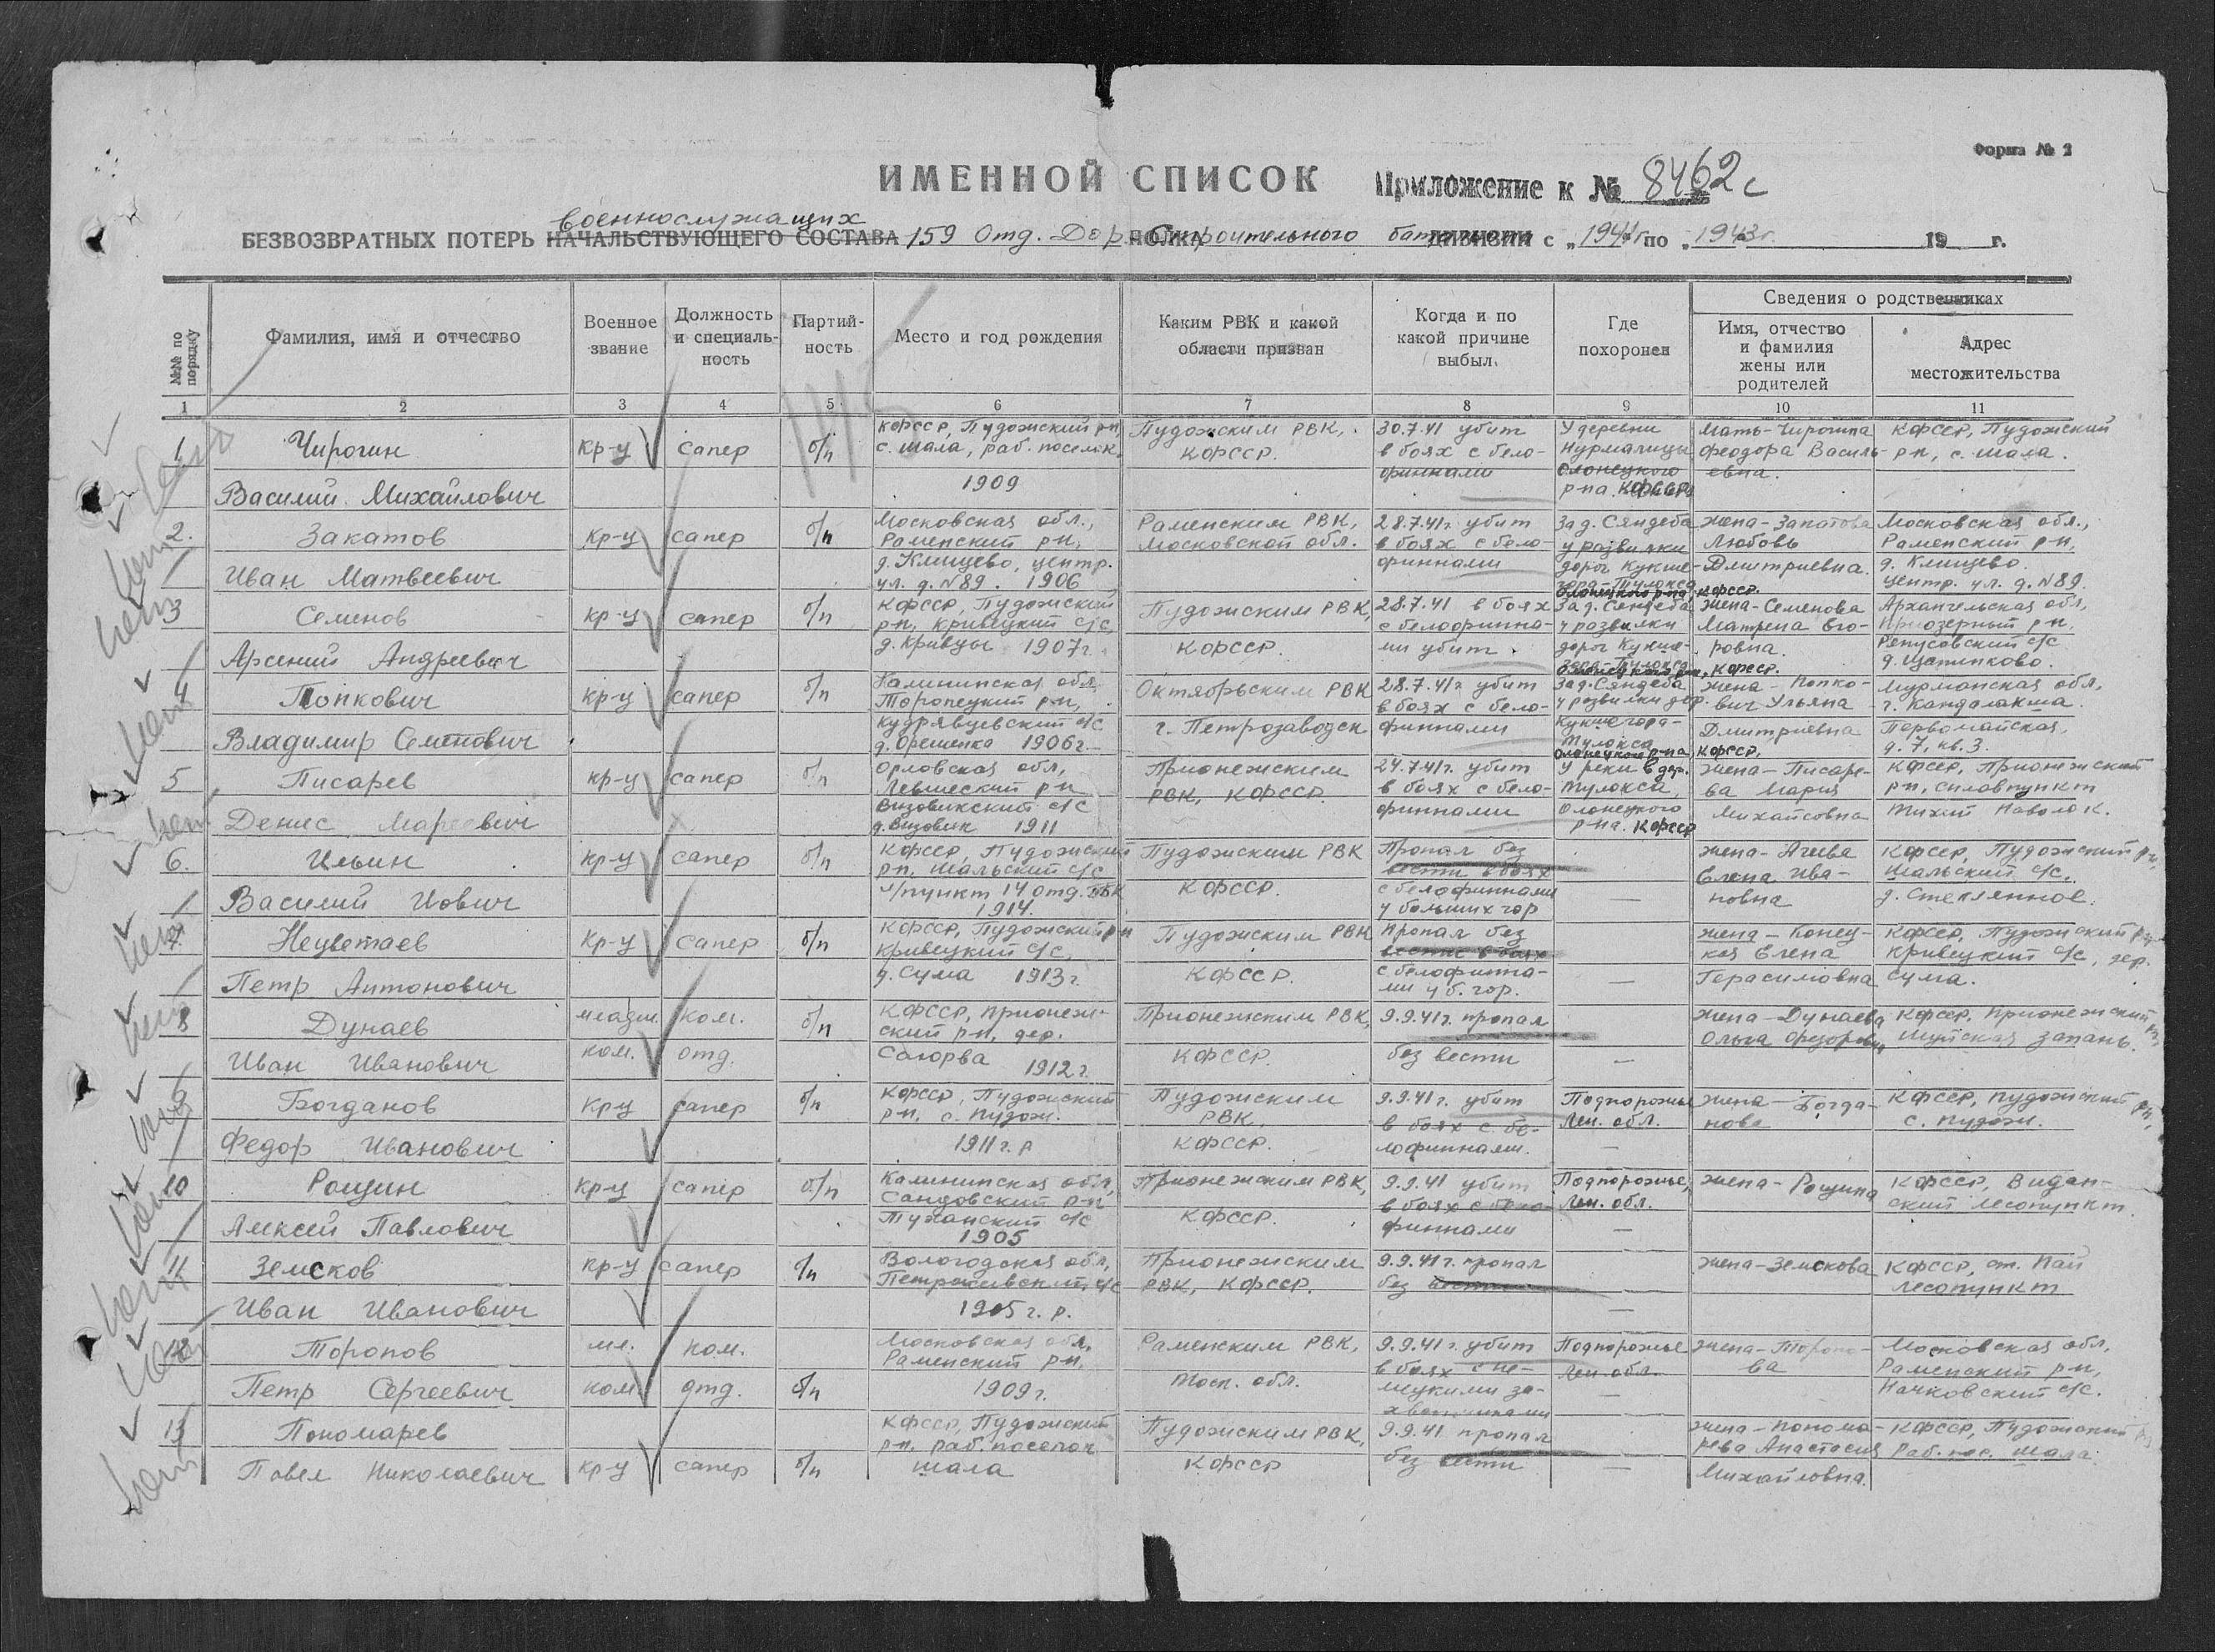 Форма № 2
ИМЕННОЙ СПИСОК Приложение к № 8462с
военнослужащих
БЕЗВОЗВРАТНЫХ ПОТЕРЬ НАЧАЛЬСТВУЮЩЕГО СОСТАВА 159 Отд. Дор. Строительного ДИВИЗИИ с „1941г по „1943г. 19 г.
№№ по порядку
Фамилия, имя и отчество
Военное звание
Должность и специаль-ность
Партий-ность
Место и год рождения
Каким РВК и какой области призван
Когда и по какой причине выбыл
Где похоронен
Сведения о родственниках
Имя, отчество и фамилия жены или родителей
Адрес местожительства
1 2 3 4 5 6 7 8 9 10 11
1 Чирогин Василий Михайлович
кр-ц сапер б/п
КФССР, Пудожский р-н,
с. Шала, раб. поселок.
1909
Пудожским РВК,
КФССР.
30.7.41 убит
в боях с бело-
финнами
У деревни
Нурмалицы
Олонецкого
р-на КФССР
Мать-Чирогина
Федора Василь-
евна.
КФССР, Пудожский
р-н, с. Шала.
2. Закатов Иван Матвеевич
кр-ц сапер б/п
Московская обл.,
Раменский р-н,
д. Клишево, центр.
ул. д. N89. 1906
Раменским РВК,
Московской обл.
28.7.41г. убит
в боях с бело-
финнами
За д. Сяндеба
у развилки
дорог Кукше-
гора-Тулокса
Олонецкого р-на, КФССР.
жена-Закатова
Любовь
Дмитриевна.
Московская обл.,
Раменский р-н,
д. Клишево.
центр. ул. д. N89.
3 Семенов Арсений Андреевич
кр-ц сапер б/п
КФССР, Пудожский
р-н, Кривецкий с/с,
д. Кривцы 1907г.
Пудожским РВК,
КФССР.
28.7.41 в боях
с белофинна-
ми убит.
За д. Сяндеба
у развилки
дорог Кукше-
гора-Тулокса
Олонецкого р-на, КФССР.
жена-Семенова
Матрена Его-
ровна.
Архангельская обл,
Приозерный р-н,
д. Щатинково.
4 Попкович Владимир Семенович
кр-ц сапер б/п
Калининская обл,
Торопецкий р-н,
Кудрявцевский с/с
д. Орешенка 1906г.
Октябрьским РВК
г. Петрозаводск
28.7.41г убит
в боях с бело-
финнами
За д. Сяндеба
у развилки дор.
Кукшегора-
Тулокса
Олонецкого р-на КФССР.
жена - Попко-
вич Ульяна
Дмитриевна
Мурманская обл,
г. Кандалакша.
Первомайская,
д. 7, кв. 3.
5 Писарев Денис
кр-ц сапер б/п
Орловская обл,
1911
Прионежским
РВК, КФССР.
24.7.41г. убит
в боях с бело-
финнами
У реки в дер.
Тулокса,
Олонецкого
р-на. КФССР
жена-Писаре-
ва Мария
Михайловна
КФССР, Прионежский
р-н, сплавпункт
Тихий Наволок.
6. Ильин Василий Иович
кр-ц сапер б/п
КФССР, Пудожский
р-н, Шальский с/с
л/пункт 14 отд. ББК
1914.
Пудожским РВК
КФССР.
Пропал без
вести в боях
с белофиннами
у больших гор
—
жена-Агиева
Елена Ива-
новна
КФССР, Пудожский р-н,
Шальский с/с,
д. Стеклянное.
7. Нецветаев Петр Антонович
кр-ц сапер б/п
КФССР, Пудожский р-н
Кривецкий с/с,
д. Сума 1913г.
Пудожским РВК
КФССР.
Пропал без
вести в боях
с белофинна-
ми у б. гор.
—
жена - Конец-
кая Елена
Герасимовна
КФССР, Пудожский р-н
Кривецкий с/с, дер.
Сума.
8 Дунаев Иван Иванович
младш. ком. ком. отд. б/п
КФССР, Прионеж-
ский р-н, дер.
1912г.
Прионежским РВК,
КФССР.
9.9.41г. пропал
без вести
—
жена-Дунаева
Ольга
КФССР, Прионежский р-н,
Шуйская запань.
9 Богданов Федор Иванович
кр-ц сапер б/п
КФССР, Пудожский
р-н, с. Пудож.
1911г. р
Пудожским
РВК,
КФССР.
9.9.41г. убит
в боях с бе-
лофиннами.
Подпорожье
Лен. обл.
—
жена - Богда-
нова
КФССР, Пудожский р-н,
с. Пудож.
10 Рощин Алексей Павлович
кр-ц сапер б/п
Калининская обл,
Сандовский р-н
Туханский с/с
1905
Прионежским РВК,
КФССР.
9.9.41 убит
в боях с бело-
финнами
Подпорожье,
Лен. обл.
—
жена - Рощина
КФССР, Видан-
ский лесопункт.
11 Земсков Иван Иванович
кр-ц сапер б/п
Вологодская обл,
1905г. р.
Прионежским
РВК, КФССР.
9.9.41г. пропал
без вести
—
жена-Земскова
КФССР, ст. Пай
лесопункт
12 Торопов Петр Сергеевич
мл. ком. ком. отд. б/п
Московская обл,
Раменский р-н,
1909г.
Раменским РВК,
Моск. обл.
9.9.41г. убит
в боях с не-
мецкими за-
хватчиками
Подпорожье
Лен. обл.
—
жена-Торопо-
ва
Московская обл,
Раменский р-н,
Начковский с/с.
13 Пономарев Павел Николаевич
кр-ц сапер б/п
КФССР, Пудожский
р-н, раб. поселок
Шала
Пудожским РВК,
КФССР
9.9.41 пропал
без вести
—
жена-Понома-
рева Анастасия
Михайловна.
КФССР, Пудожский р-н
Раб. пос. Шала.